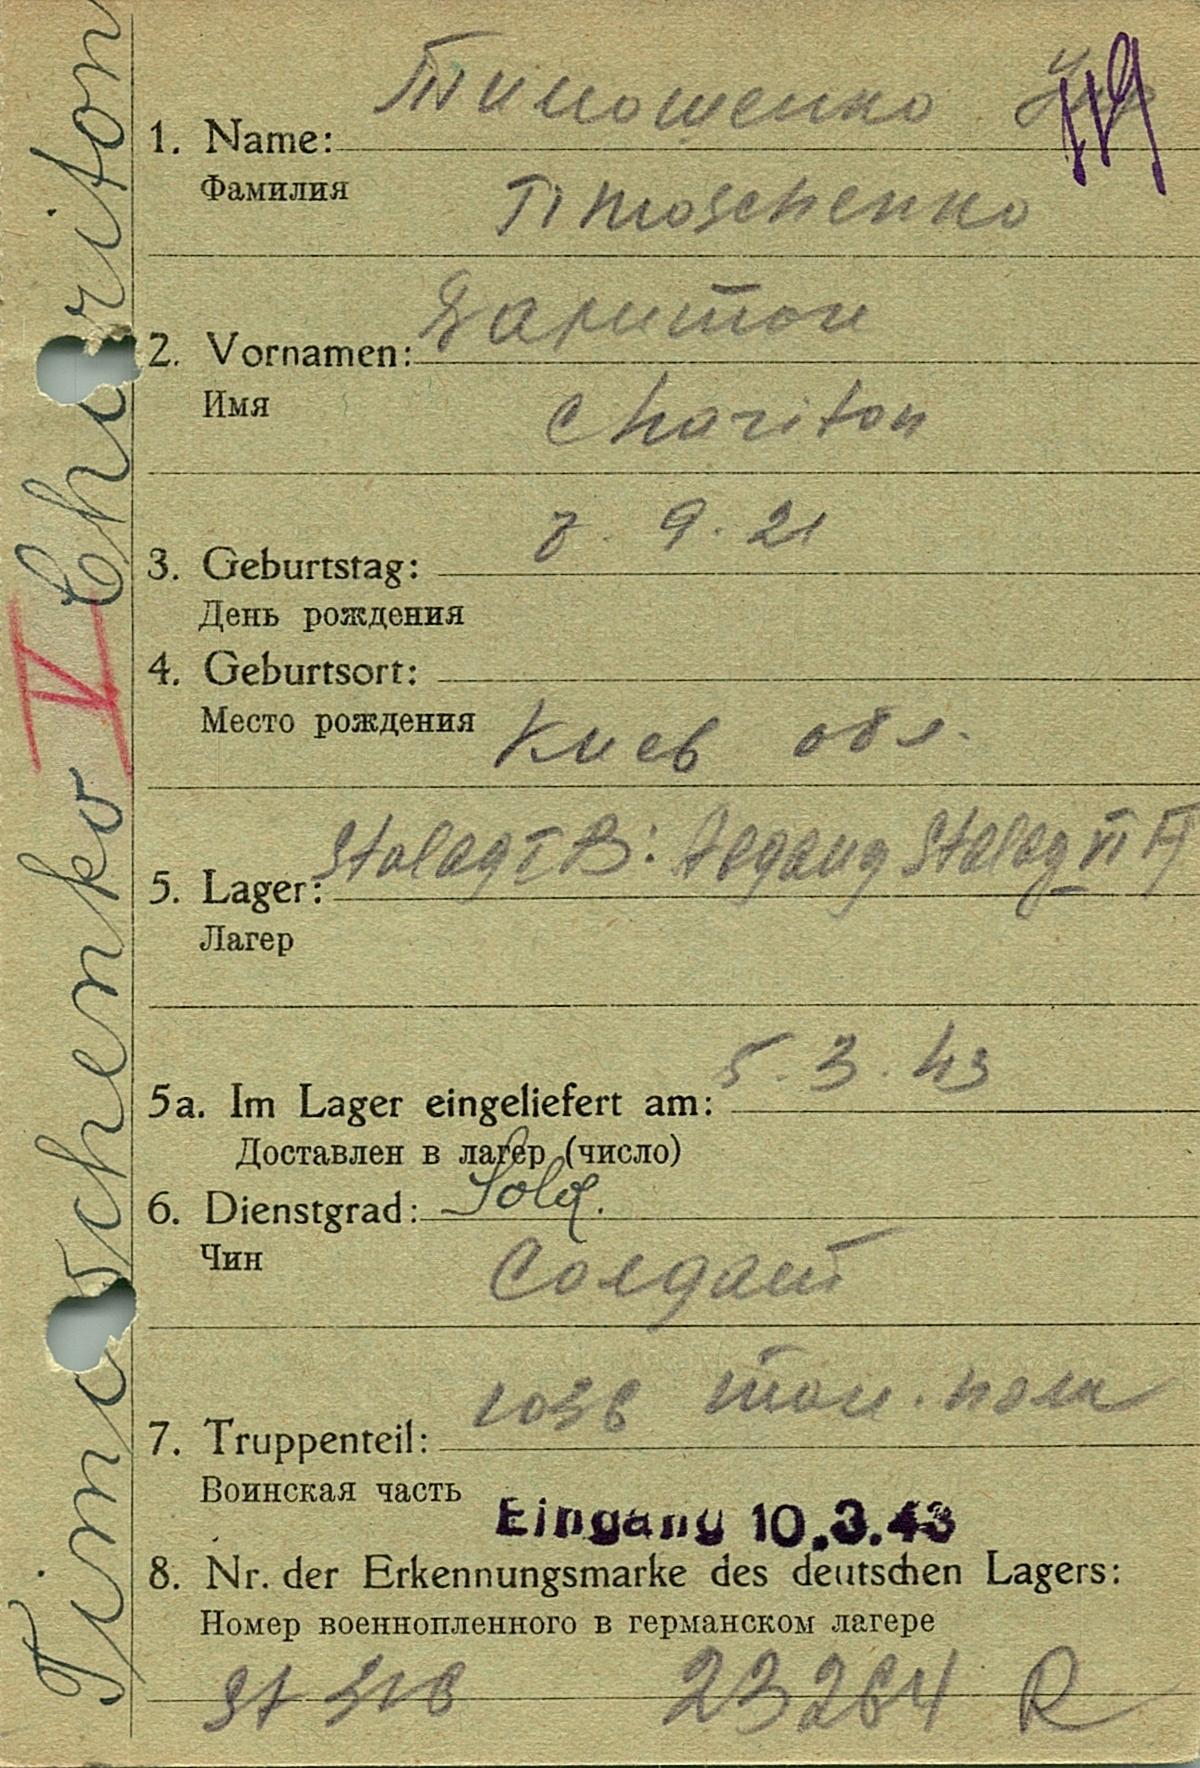 Timoschenko Chariton
V
Тимошенко Укр
1. Name:
Фамилия
Timoschenko
2. Vornamen: Харитон
Имя
Chariton
3. Geburtstag: 8. 9. 21
День рождения
4. Geburtsort:
Место рождения Киев обл.
5. Lager: Stalag I B: Abgang Stalag VI A
Лагер
5a. Im Lager eingeliefert am: 5. 3. 43
Доставлен в лагер (число)
6. Dienstgrad: Sold.
Чин Солдат
7. Truppenteil: 1038
Воинская часть
Eingang 10.3.43
8. Nr. der Erkennungsmarke des deutschen Lagers:
Номер военнопленного в германском лагере
St 318 23264 R